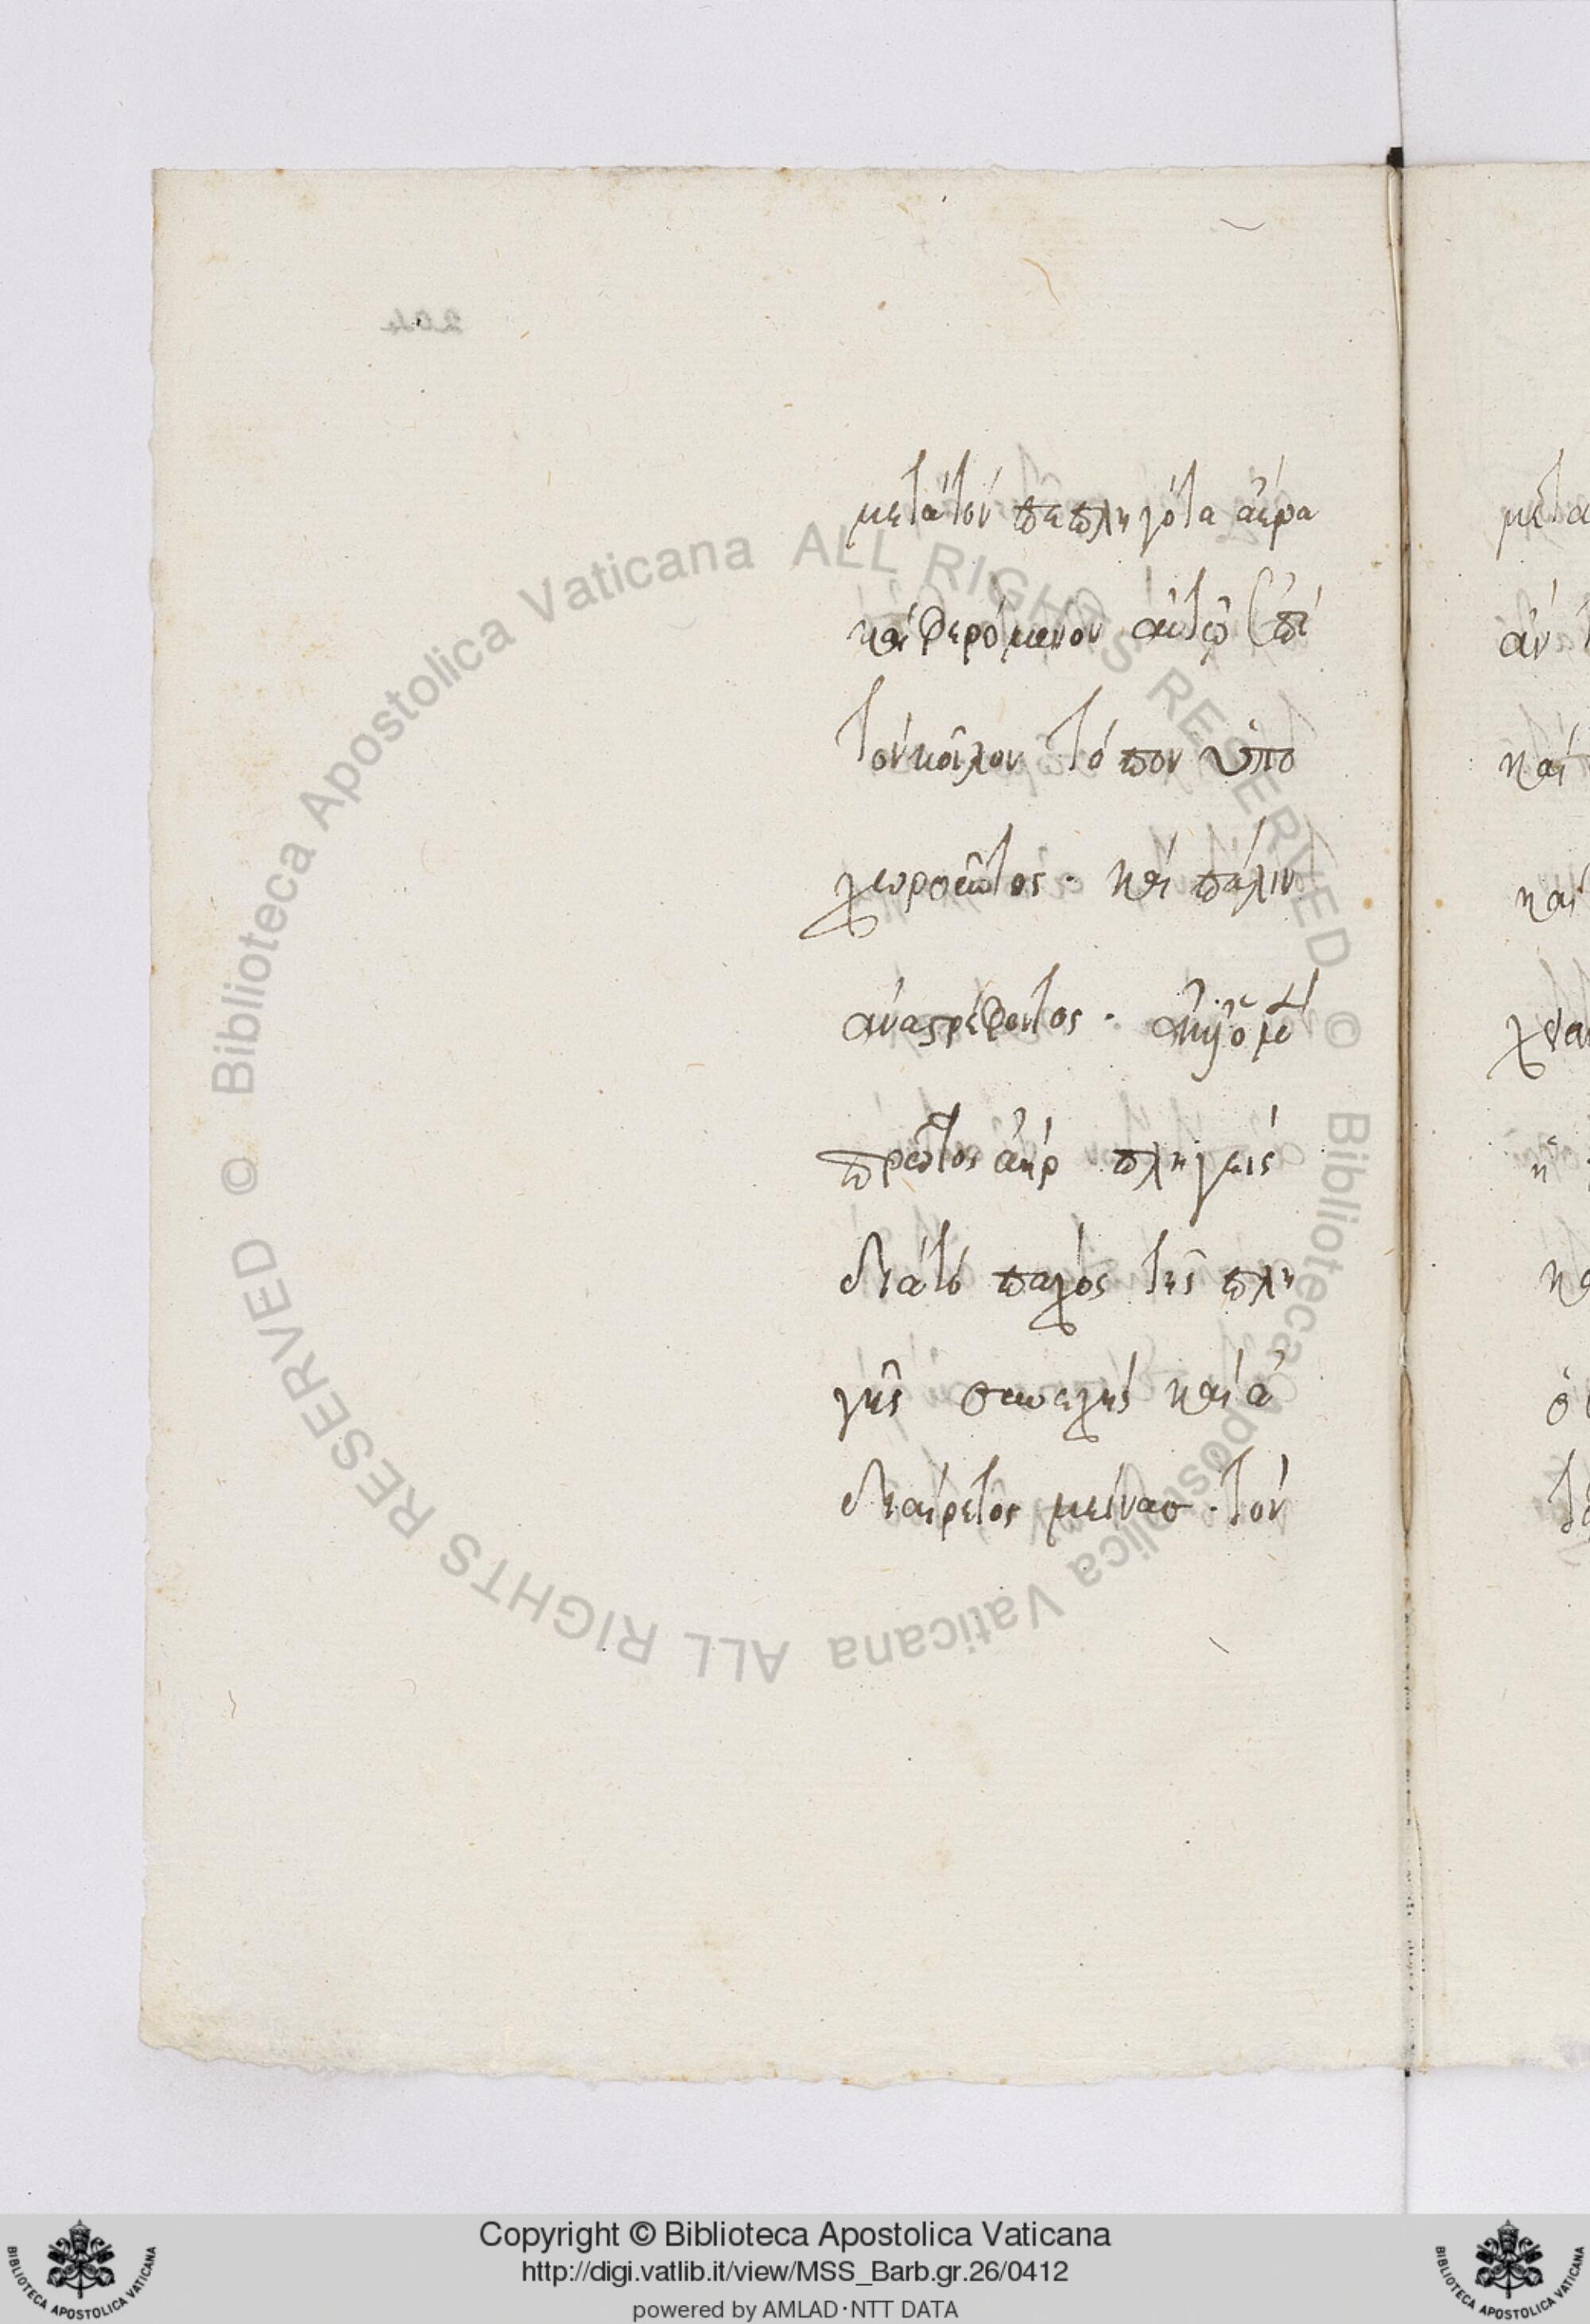 μετὰ τὸν πεπληγότα ἀέρα
καὶ φερόμενον αὐτῶ ἐπὶ
τὸν κοῖλον τόπον ὑπο
χωροῦντος · καὶ πάλιν
ἀναστρέφοντος ·
πρῶτος ἀὴρ πληγεὶς
διὰ τὸ παχος τῆς πλη
γῆς συνεχὴς καὶ ἀ
διαίρετος μείνασ · τὸν
204
Copyright © Biblioteca Apostolica Vaticana
http://digi.vatlib.it/view/MSS_Barb.gr.26/0412
powered by AMLAD·NTT DATA
© Biblioteca Apostolica Vaticana ALL RIGHTS RESERVED © Biblioteca Apostolica Vaticana ALL RIGHTS RESERVED
BIBLIOTECA APOSTOLICA VATICANA
BIBLIOTECA APOSTOLICA VATICANA